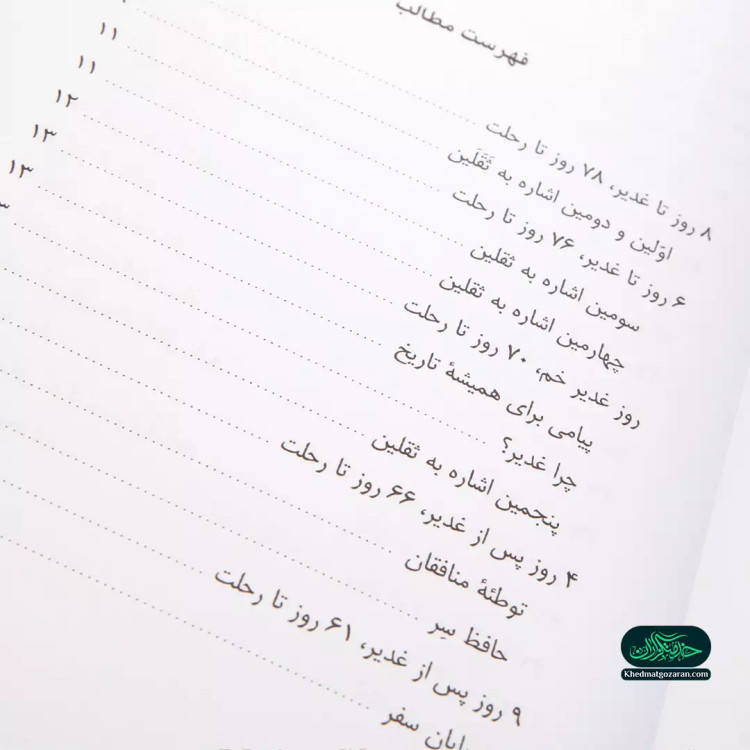 فهرست مطالب
۸ روز تا غدیر، ۷۸ روز تا رحلت
اوّلین و دومین اشاره به ثَقَلَین ۱۱
۶ روز تا غدیر، ۷۶ روز تا رحلت ۱۱
سومین اشاره به ثقلین ۱۲
چهارمین اشاره به ثقلین ۱۳
روز غدیر خم، ۷۰ روز تا رحلت ۱۳
پیامی برای همیشهٔ تاریخ
چرا غدیر؟
پنجمین اشاره به ثقلین
۴ روز پس از غدیر، ۶۶ روز تا رحلت
توطئهٔ منافقان
حافظ سِر
۹ روز پس از غدیر، ۶۱ روز تا رحلت
پایان سفر
خدمتگزاران
Khedmatgozaran.com